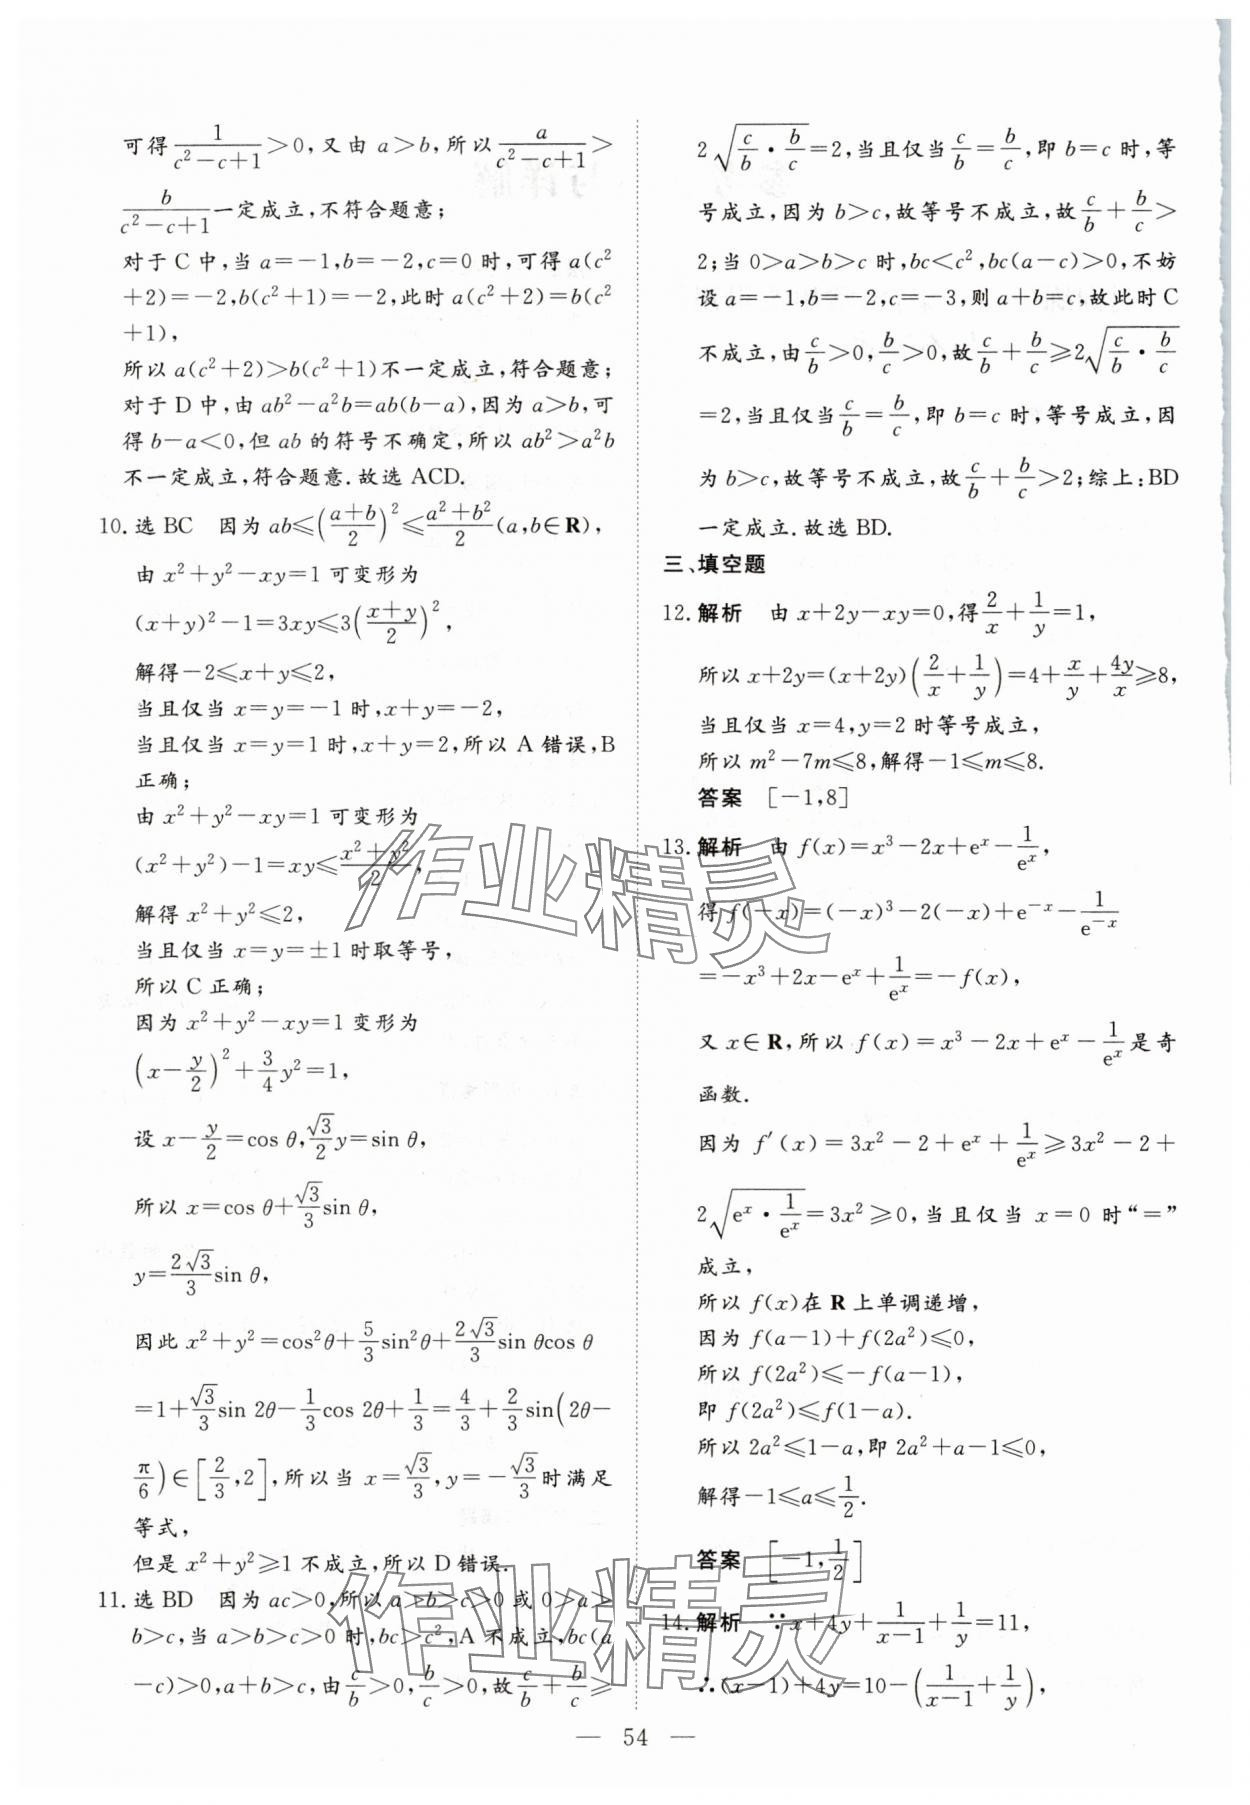 可得1/(c²-c+1)>0,又由 a>b,所以a/(c²-c+1)>
b/(c²-c+1)一定成立,不符合题意;
对于 C 中,当 a=-1,b=-2,c=0 时,可得 a(c²
+2)=-2,b(c²+1)=-2,此时 a(c²+2)=b(c²
+1),
所以 a(c²+2)>b(c²+1)不一定成立,符合题意;
对于 D 中,由 ab²-a²b=ab(b-a),因为 a>b,可
得 b-a<0,但 ab 的符号不确定,所以 ab²>a²b
不一定成立,符合题意.故选 ACD.
10. 选 BC　因为 ab≤((a+b)/2)²≤(a²+b²)/2(a,b∈R),
由 x²+y²-xy=1 可变形为
(x+y)²-1=3xy≤3((x+y)/2)²,
解得-2≤x+y≤2,
当且仅当 x=y=-1 时,x+y=-2,
当且仅当 x=y=1 时,x+y=2,所以 A 错误,B
正确;
由 x²+y²-xy=1 可变形为
(x²+y²)-1=xy≤(x²+y²)/2,
解得 x²+y²≤2,
当且仅当 x=y=±1 时取等号,
所以 C 正确;
因为 x²+y²-xy=1 变形为
(x-y/2)²+3/4y²=1,
设 x-y/2=cos θ,√3/2y=sin θ,
所以 x=cos θ+√3/3sin θ,
y=2√3/3sin θ,
因此 x²+y²=cos²θ+5/3sin²θ+2√3/3sin θcos θ
=1+√3/3sin 2θ-1/3cos 2θ+1/3=4/3+2/3sin(2θ-
π/6)∈[2/3,2],所以当 x=√3/3,y=-√3/3时满足
等式,
但是 x²+y²≥1 不成立,所以 D 错误.
11. 选 BD　因为 ac>0,所以 a>b>c>0 或 0>a>
b>c,当 a>b>c>0 时,bc>c²,A 不成立,bc(a
-c)>0,a+b>c,由c/b>0,b/c>0,故c/b+b/c≥
2√(c/b·b/c)=2,当且仅当c/b=b/c,即 b=c 时,等
号成立,因为 b>c,故等号不成立,故c/b+b/c>
2;当 0>a>b>c 时,bc<c²,bc(a-c)>0,不妨
设 a=-1,b=-2,c=-3,则 a+b=c,故此时 C
不成立,由c/b>0,b/c>0,故c/b+b/c≥2√(c/b·b/c)
=2,当且仅当c/b=b/c,即 b=c 时,等号成立,因
为 b>c,故等号不成立,故c/b+b/c>2;综上:BD
一定成立.故选 BD.
三、填空题
12. 解析　由 x+2y-xy=0,得2/x+1/y=1,
所以 x+2y=(x+2y)(2/x+1/y)=4+x/y+4y/x≥8,
当且仅当 x=4,y=2 时等号成立,
所以 m²-7m≤8,解得-1≤m≤8.
答案　[-1,8]
13. 解析　由 f(x)=x³-2x+eˣ-1/eˣ,
得 f(-x)=(-x)³-2(-x)+e⁻ˣ-1/e⁻ˣ
=-x³+2x-eˣ+1/eˣ=-f(x),
又 x∈R,所以 f(x)=x³-2x+eˣ-1/eˣ是奇
函数.
因为 f′(x)=3x²-2+eˣ+1/eˣ≥3x²-2+
2√(eˣ·1/eˣ)=3x²≥0,当且仅当 x=0 时“=”
成立,
所以 f(x)在 R 上单调递增,
因为 f(a-1)+f(2a²)≤0,
所以 f(2a²)≤-f(a-1),
即 f(2a²)≤f(1-a).
所以 2a²≤1-a,即 2a²+a-1≤0,
解得-1≤a≤1/2.
答案　[-1,1/2]
14. 解析　∵x+4y+1/(x-1)+1/y=11,
∴(x-1)+4y=10-(1/(x-1)+1/y),
— 54 —
作业精灵
作业精灵